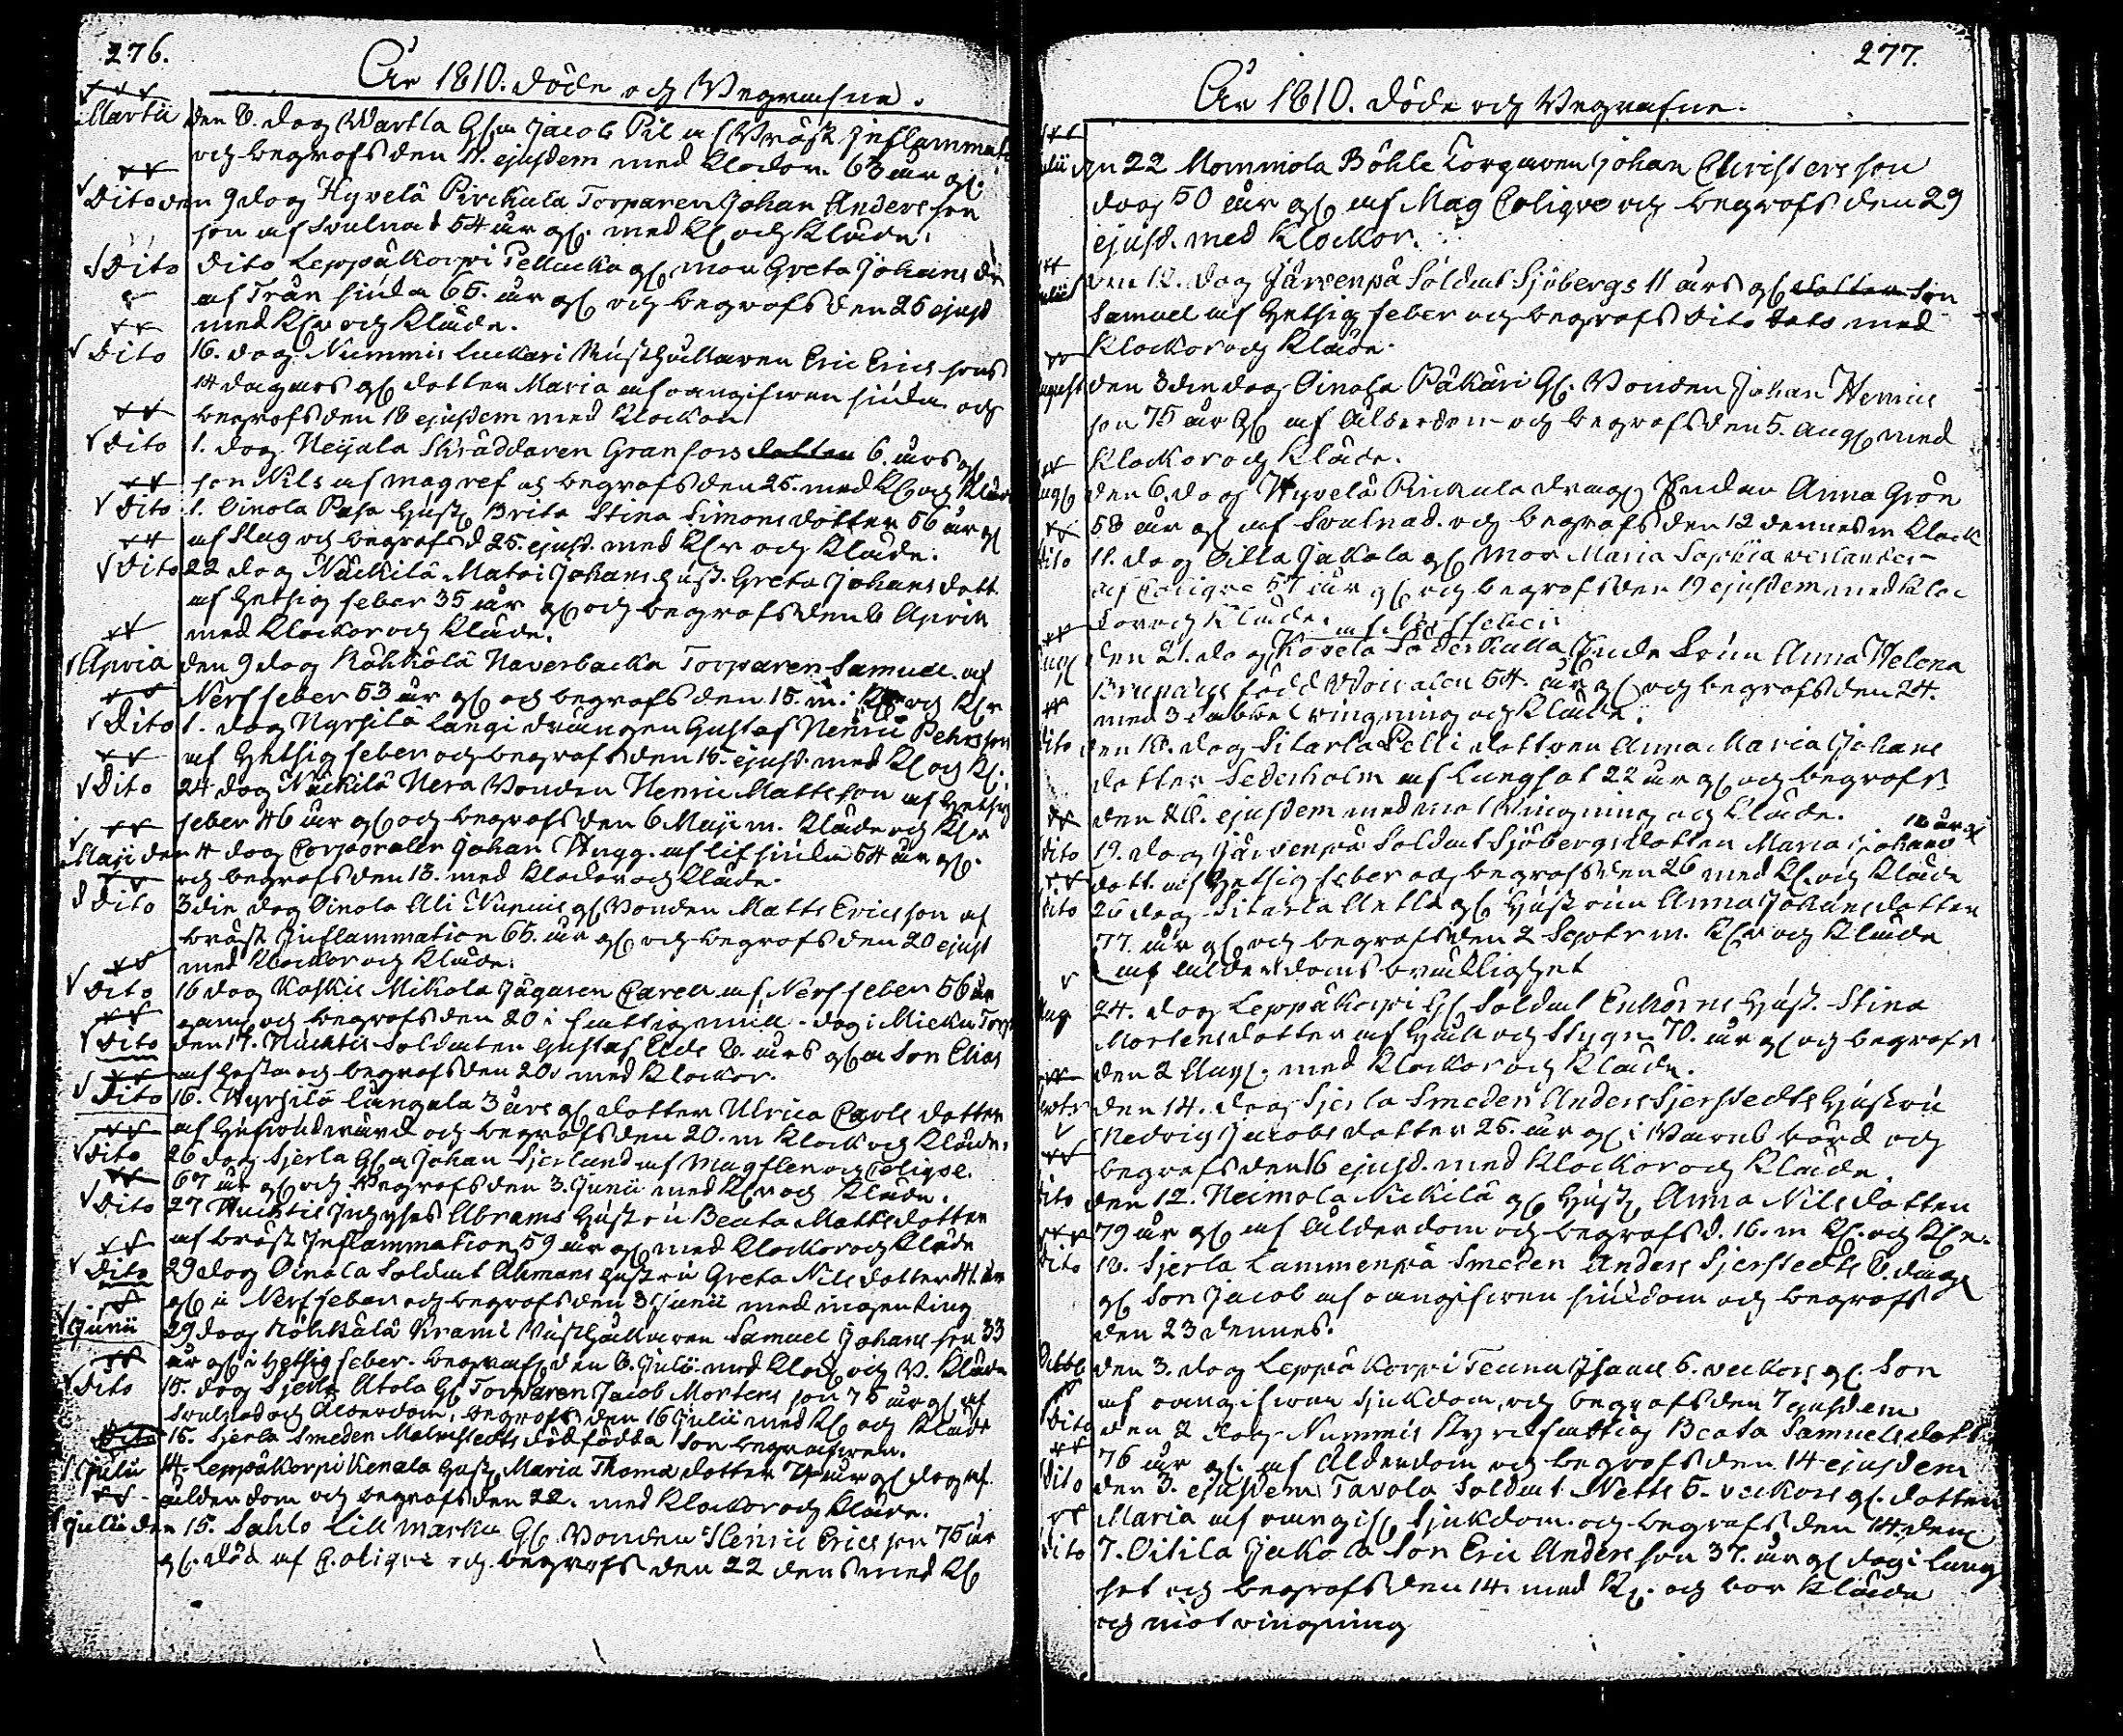 276.
År 1810. döde och Begrafne.
Martii den 8. dog Wartla Gl Jacob Pil af Bröst Inflammat
och begrofs den 11. ejusdem med Klockor. 63 år gl.
Dito den 9 dog Hyvelä Pirckala Torparen Johan Anders son
son af Svulnad 54 år gl. med Kl och Kläde.
Dito dito Leppäkorpi Pellacka gl mor Greta Johans dr
af Trånsiuka 66. år gl och begrofs den 25 ejusd
med Klr och Kläde.
Dito 16. dog Nummis Luckari Rusthållaren Eric Erics sons
14 dagars gl dotter Maria af oangifwen siuka och
begrofs den 18 ejusdem med Klockor
Dito 1. dog Neijala Skräddaren Granfors dotter 6. års gl
son Nils af magref och begrofs den 25. med Kl och Kläde
Dito 1. Oinola Pass Hust Brita Stina Simonsdotter 56 år gl
af Slag och begrofs d 25. ejusd. med Klr och Kläde.
Dito 22 dog Näckilä Matoi Johans Hust. Greta Johans dott
af Hetsig feber 35 år gl och begrofs den 8 April
med Klockor och Kläde.
Aprill den 9 dog Röhkölä Naverbacka Torparen Samuel af
Nerffeber 53 år gl och begrofs den 15. m: Kl och Klr
Dito 1. dog Nyrhilä Långi drängen Gustaf Henric Pehrsson
af Hetsig feber och begrofs den 15. ejusd. med Kl och Kl.
Dito 24 dog Näckilä Nera Bonden Henric Matts son af Hetsig
feber 46 år gl och begrofs den 6 Maji m. Kläde och Klr
Maji den 4 dog Corporalen Johan Hygg. af lifsiuka 54 år gl.
och begrofs den 13. med Klockor och Kläde.
Dito 3die dog Oinola Ali Nuxuis gl Bonden Matts Ericsson af
bröst Inflammation 65. år gl och begrofs den 20 ejusd
med Klockor och Kläde.
Dito 16 dog Koskis Mikola Jägaren Carell af Nerffeber 56 år
gam och begrofs den 20 i fattig mull. dog i Micku Torp
Dito den 17. Nuchtis Soldaten Gustaf Elds 8. års gl Son Elias
af Hosta och begrofs den 20. med Klockor.
Dito 16. Hyrsilä Långala 3 års gl dotter Ulrica Carls dotter
af Hufvudvärk och begrofs den 20. m Klock och Kläde
Dito 26 dog Sjerla Gl Johan Sjerland af Magflen och Colique.
67 år gl och begrofs den 3. Junii med Klr och Kläde.
Dito 27 Huchtis Abrams Hustru Beata Mattsdotter
af bröst Inflammation 59 år gl med Klockor och Kläde
Dito 29 dog Oinola Soldat Ahmans Hustru Greta Nilsdotter 41. år
gl i Nerffeber och begrofs den 3 Junii med ingenting
Junii 29 dog Röhkälä Krami Rusthållaren Samuel Johans son 33
år gl i Hetsig feber. begrofs den 8. Julii med Klock och B. Kläde
Dito 15. dog Sjerla Atola Gl Torparen Jacob Mortens son 75 år gl af
Svulnad och Ålderdom, begrofs den 16 Julii med Kl och Kläde
Dito 15. Sjerla Smeden Malmstedts dödfödda Son begrafwen.
Julii 14. Leppäkorpi Kenala Hust Maria Thomæ dotter 74 år gl dog af
ålderdom och begrofs den 22. med Klockor och Kläde.
Julii den 15. Sahlo Lill Marku Gl Bonden Henric Ericsson 75 år
gl. död af Colique och begrofs den 22 dens med Kl
277.
År 1810. döde och Begrafne.
Julii den 22 Mommola Böhle Torparen Johan Christers son
dog 50 år gl af Mag Colique och begrofs den 29
ejusd. med Klockor.
Julii den 12. dog Järvenpä Soldat Sjöbergs 11 års gl dotter Son
Samuel af Hetsig feber och begrofs dito dato med
Klockor och Kläde.
Augusti den 3die dog Oinola Päkäri Gl. Bonden Johan Henrics
son 75 år gl af Ålderdom och begrofs den 5. aug med
Klockor och Kläde.
Augl den 6. dog Hyvelä Pirckala Enkan Anna Grön
58 år gl af Svulnad. och begrofs den 12 dennes m Klock
Dito 11. dog Ailla Jakola gl Mor Maria Sophia
af Colique 57 år gl och begrofs den 19 ejusdem med Kloc
kor och Kläde.
Augl den 21. dog Kovela Söderkulla Fru Anna Helena
född 54. år gl och begrofs den 24.
med 3 dubbel ringning och Kläde.
Dito den 18. dog Sitarla Pelli dottren Anna Maria Johans
dotter Sederholm af Lungsot 22 år gl och begrofs
den 26. ejusdem med mot Ringning och Kläde.
18 år gl
Dito 19. dog Järvenpä Soldat Sjöbergs dotter Maria Johans
dott. af Hetsig feber och begrofs den 26 med Kl och Kläde
Dito 26 dog Sitarla Anttla gl Hustrun Anna Johansdotter
77. år gl och begrofs den 2 Septr m. Klr och Kläde
af ålderdoms bräcklighet
Aug 24. dog Leppäkorpi gl Soldat Enhörns Hust. Stina
Mortensdotter af Håll och Stygn 70. år gl och begrofs
den 2 med Klockor och Kläde.
Septr den 14. dog Sjerla Smeden Anders Sjerstedts Hustru
Hedvig Jacobs dotter 25. år gl i Barns börd och
begrofs den 16 ejusd. med Klockor och Kläde.
Dito den 12. Heimola Nickilä gl Hust Anna Nilsdotter
79 år gl af Ålderdom och begrofs d. 16. m Kl. och Klr.
Dito 18. Sjerla Lammenpä Smeden Anders Sjerstedts 8. dags
gl Son Jacob af oangifwen siukdom och begrofs
den 23 dennes.
Octob den 3. dog Leppäkorpi Isaacs 5. veckors gl. Son
af oangifwen Sjukdom och begrofs den 7 ejusdem
Dito den 2 dog Nummis Kyrckfattig Beata Samuelsdott
76 år gl. af Ålderdom och begrofs den 14 ejusdem
Dito den 3. ejusdem Tavola Soldat Netts 5. veckors gl. dotter
Maria af oangif Sjukdom och begrofs den 14. denn
Dito 7. Oitila Jakola Son Eric Anders son 37. år gl dog i Lung
sot och begrofs den 14. med Kl. och bor Kläde
och mot ringning